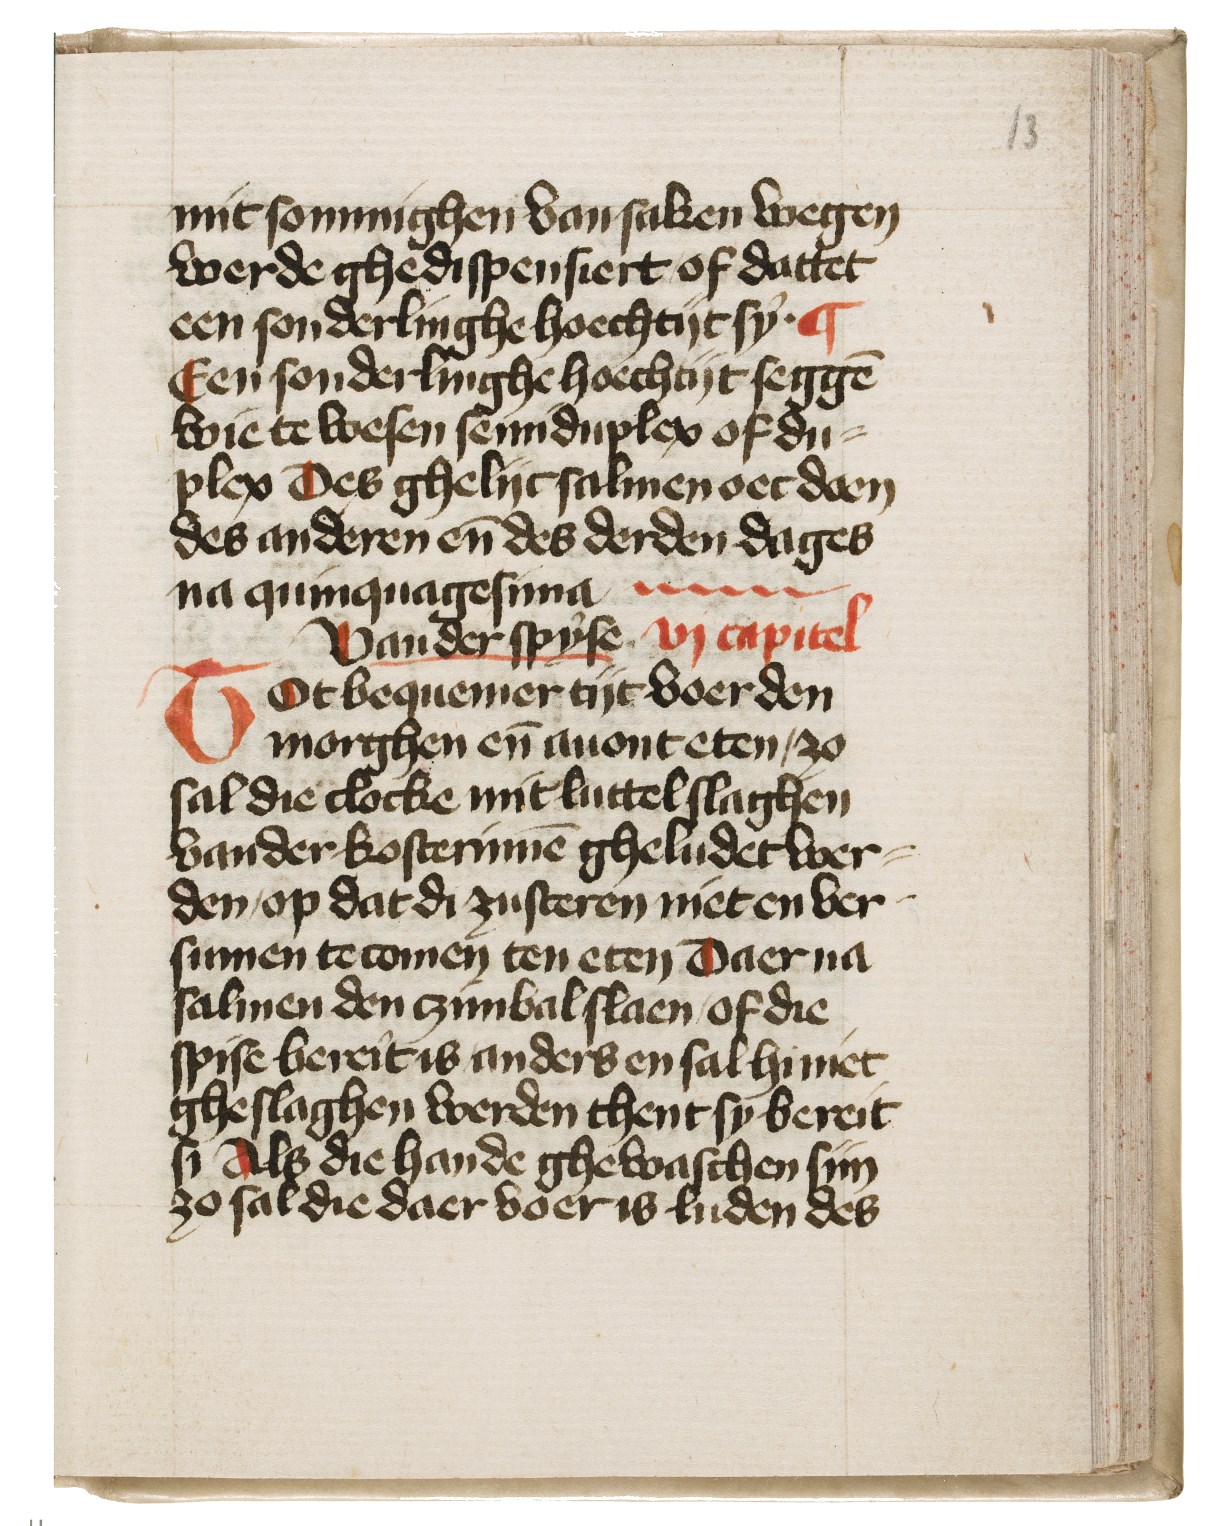 13
mit sommighen van saken wegen
werde ghedispensiert of dattet
een sonderlinghe hoechtijt sẏ. ¶
Een sonderlinghe hoechtijt seggē
wie te wesen semiduplex of du=
plex Des ghelijc salmen oec doen
des anderen en̄ des derden dages
na quinquagesima
Van der spyse. vj capitel
TOt bequemer tijt voer den
morghen en̄ auont eten / zo
sal die clocke mit luttel slaghen
vander kosterinnē gheludet wer=
den / op dat di zusteren niet en ver-
sumen te comen ten eten Daer na
salmen den czimbal slaen / of die
spise bereit is anders en sal hi niet
gheslaghen werden thent sy bereit
si Als die hande ghewaschen sijn
zo sal die daer voer is luden des